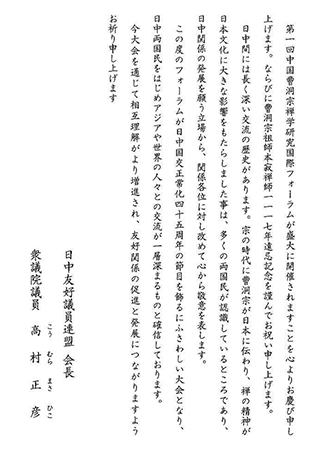 第一回中国曹洞宗禅学研究国際フォーラムが盛大に開催されますことを心よりお慶び申し
上げます。ならびに曹洞宗祖師本寂禅師一一一七年遠忌記念を謹んでお祝い申し上げます。
日中間には長く深い交流の歴史があります。宗の時代に曹洞宗が日本に伝わり、禅の精神が
日本文化に大きな影響をもたらしました事は、多くの両国民が認識しているところであり、
日中関係の発展を願う立場から、関係各位に対し改めて心から敬意を表します。
この度のフォーラムが日中国交正常化四十五周年の節目を飾るにふさわしい大会となり、
日中両国民をはじめアジアや世界の人々との交流が一層深まるものと確信しております。
今大会を通じて相互理解がより増進され、友好関係の促進と発展につながりますよう
お祈り申し上げます
日中友好議員連盟 会長
衆議院議員 高村正彦
こうむらまさひこ